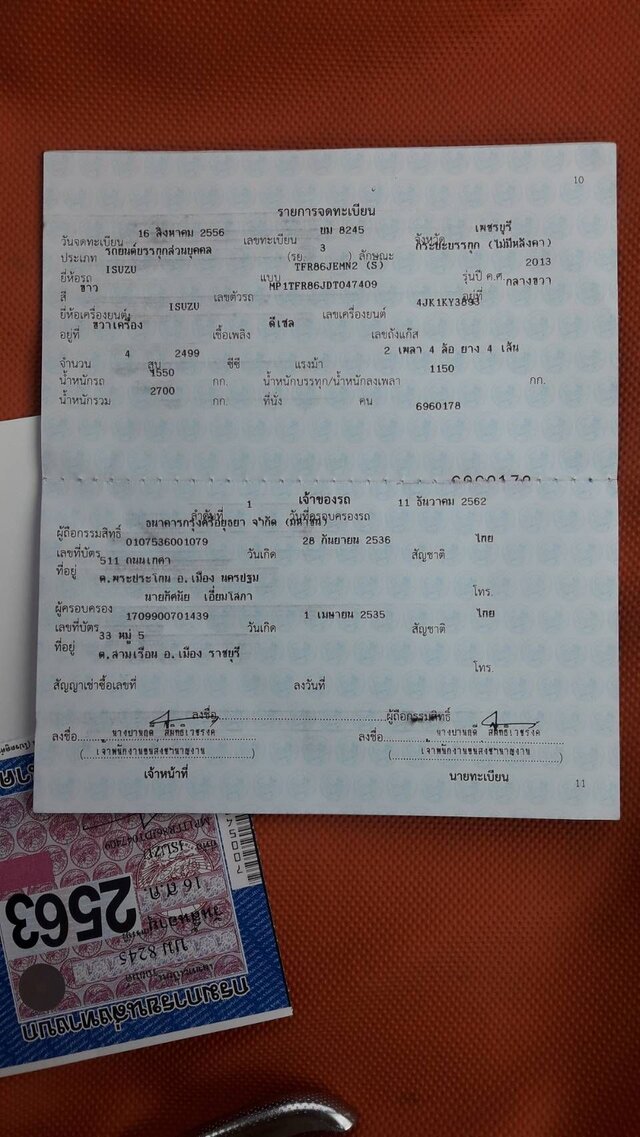 10
รายการจดทะเบียน
วันจดทะเบียน 16 สิงหาคม 2556 เลขทะเบียน ยม 8245 จังหวัด เพชรบุรี
ประเภท รถยนต์บรรทุกส่วนบุคคล (รย. 3 ) ลักษณะ กระบะบรรทุก (ไม่มีหลังคา)
ยี่ห้อรถ ISUZU แบบ TFR86JEMN2 (S) รุ่นปี ค.ศ. 2013
สี ขาว เลขตัวรถ MP1TFR86JDT047409 อยู่ที่ กลางขวา
ยี่ห้อเครื่องยนต์ ISUZU เลขเครื่องยนต์ 4JK1KY3893
อยู่ที่ ขวาเครื่อง เชื้อเพลิง ดีเซล เลขถังแก๊ส
จำนวน 4 สูบ 2499 ซีซี แรงม้า 2 เพลา 4 ล้อ ยาง 4 เส้น
น้ำหนักรถ 1550 กก. น้ำหนักบรรทุก/น้ำหนักลงเพลา 1150 กก.
น้ำหนักรวม 2700 กก. ที่นั่ง คน
6960178
เจ้าของรถ
ลำดับที่ 1 วันที่ครอบครองรถ 11 ธันวาคม 2562
ผู้ถือกรรมสิทธิ์ ธนาคารกรุงศรีอยุธยา จำกัด (มหาชน)
เลขที่บัตร 0107536001079 วันเกิด 28 กันยายน 2536 สัญชาติ ไทย
ที่อยู่ 511 ถนนเทศา
ต.พระประโทน อ.เมือง นครปฐม โทร.
ผู้ครอบครอง นายทัศนัย เอี่ยมโสภา
เลขที่บัตร 1709900701439 วันเกิด 1 เมษายน 2535 สัญชาติ ไทย
ที่อยู่ 33 หมู่ 5
ต.สามเรือน อ.เมือง ราชบุรี โทร.
สัญญาเช่าซื้อเลขที่ ลงวันที่
ลงชื่อ ผู้ถือกรรมสิทธิ์
ลงชื่อ ลงชื่อ
(เจ้าพนักงานขนส่งชำนาญงาน) (เจ้าพนักงานขนส่งชำนาญงาน)
เจ้าหน้าที่ นายทะเบียน
11
กรมการขนส่งทางบก
8245
วันสิ้นอายุ
16 ส.ค. 2563
ISUZU
MP1TFR86JDT047409